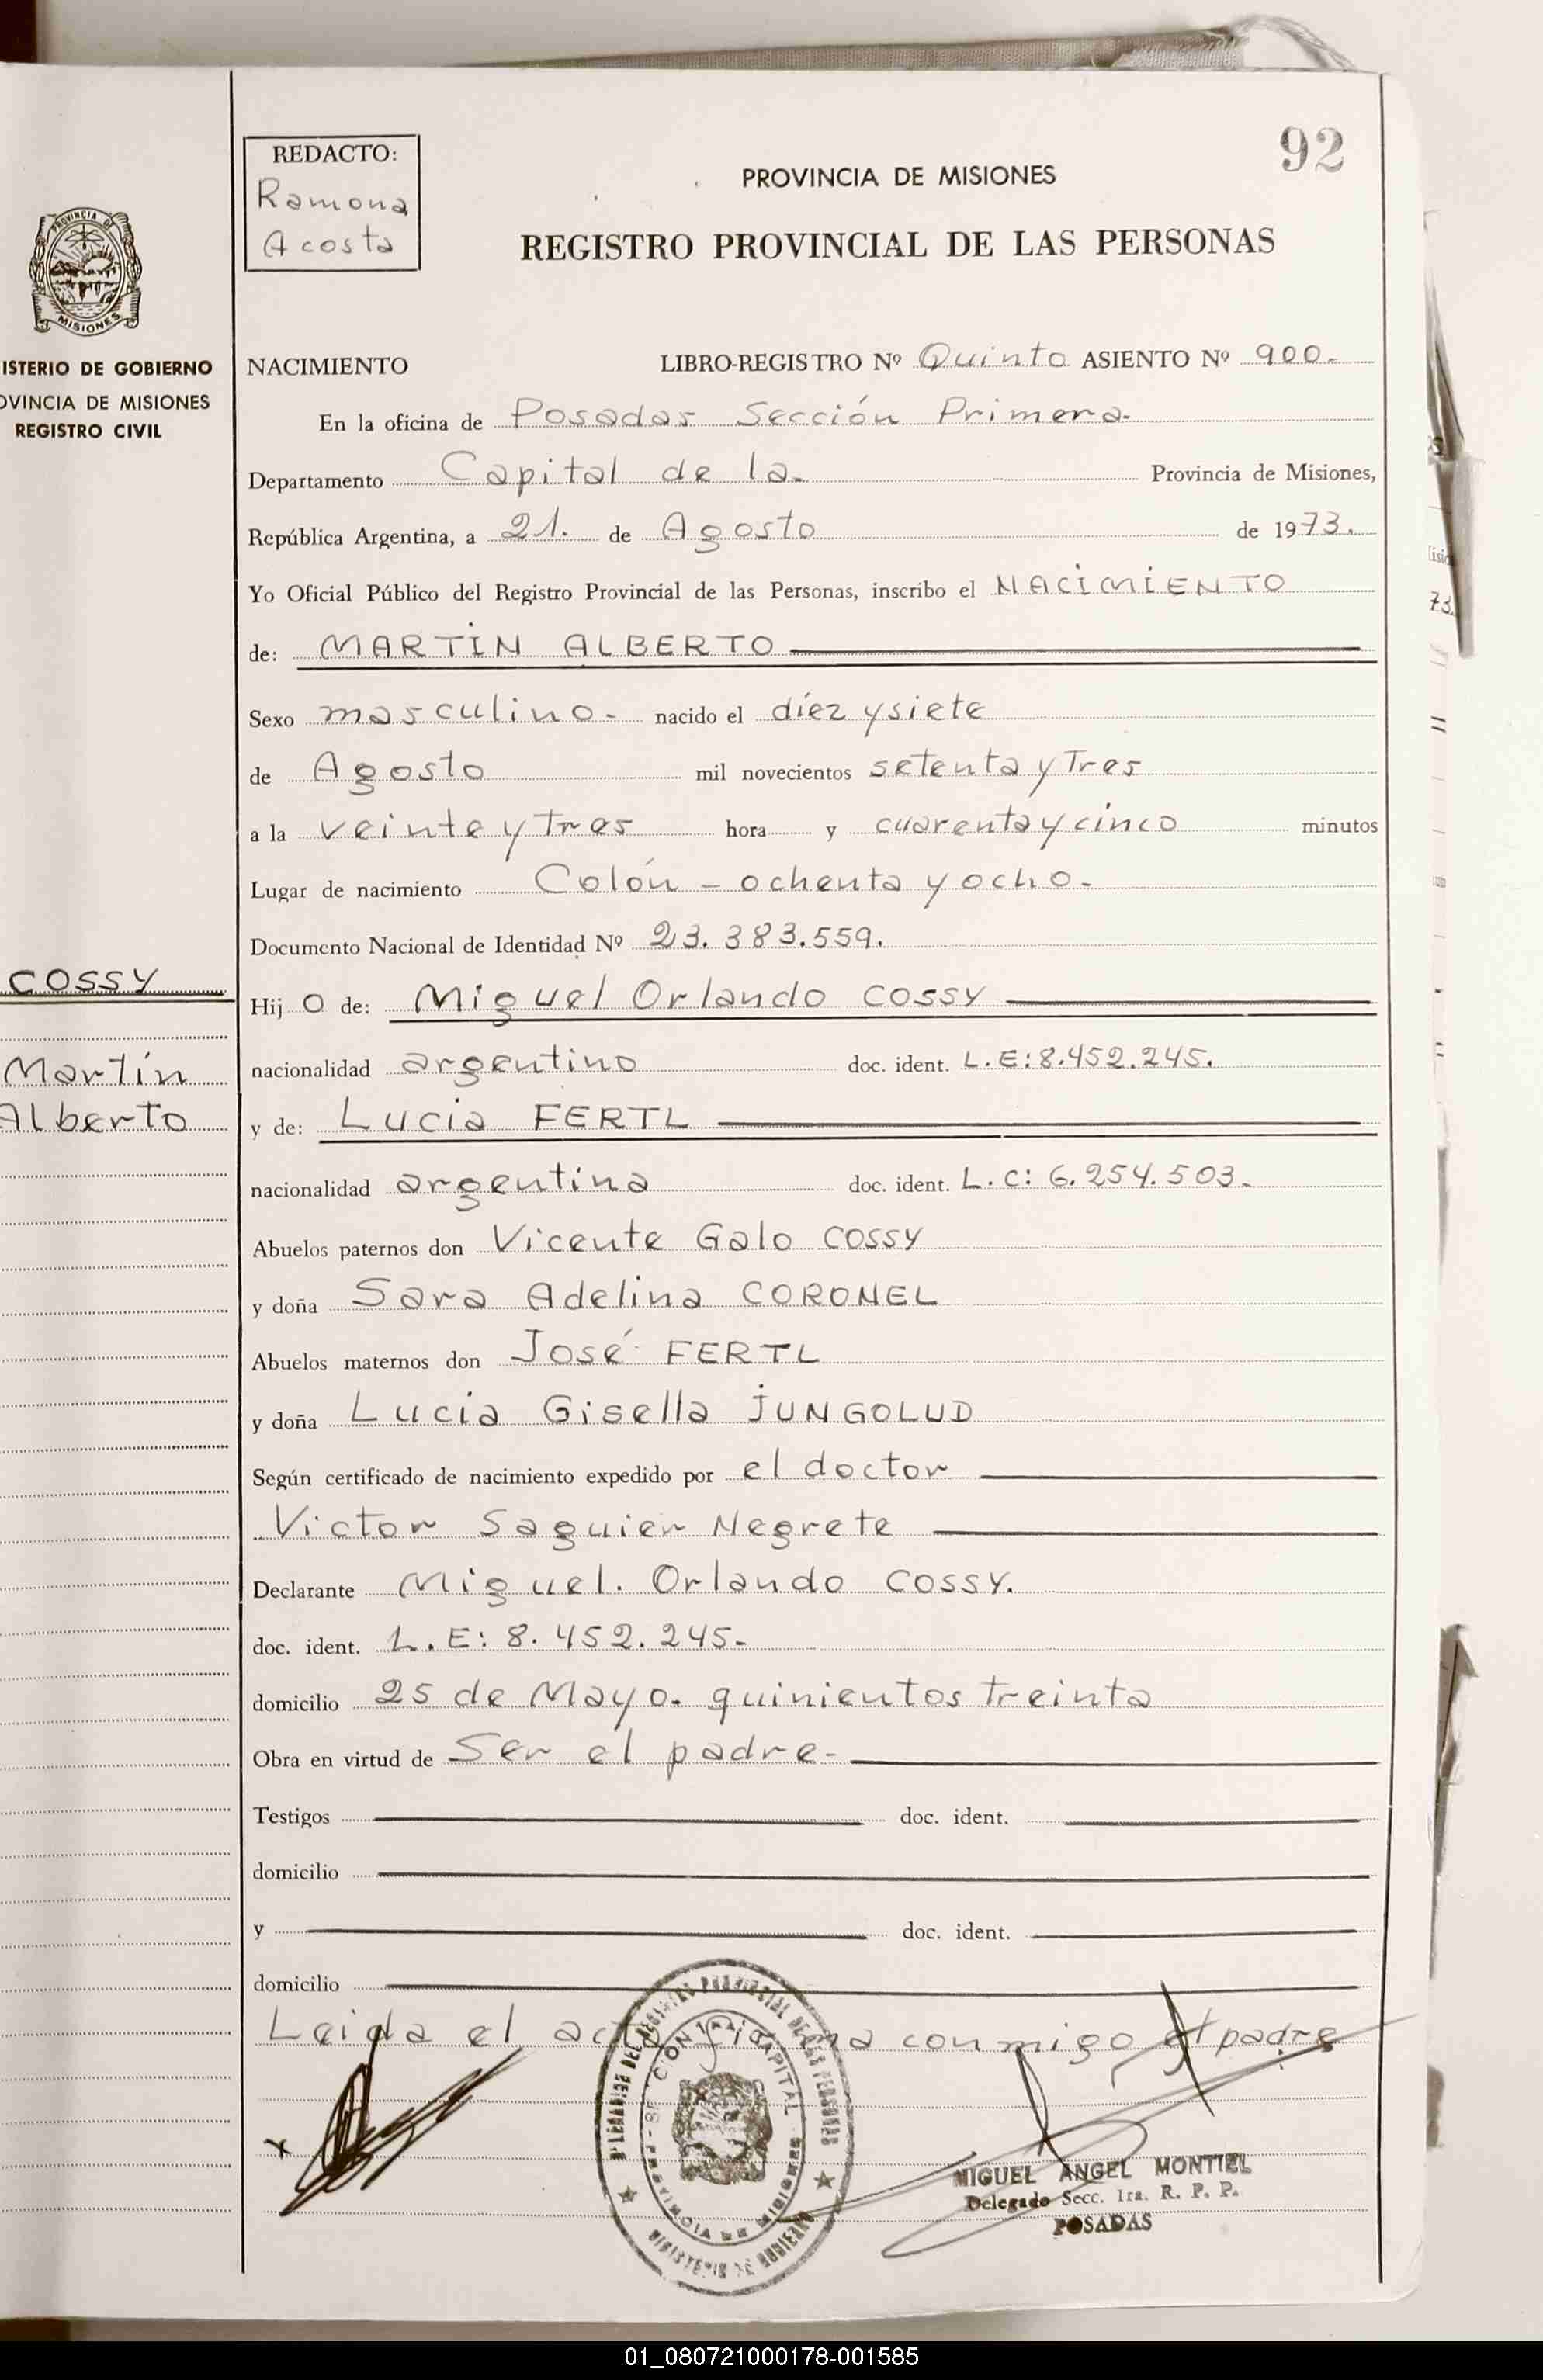 92
REDACTO:
Ramona
Acosta
PROVINCIA DE MISIONES
REGISTRO PROVINCIAL DE LAS PERSONAS
MISIONES
ISTERIO DE GOBIERNO
OVINCIA DE MISIONES
REGISTRO CIVIL
COSSY
Martín
Alberto
NACIMIENTO LIBRO-REGISTRO Nº Quinto ASIENTO Nº 900.-
En la oficina de Posadas Sección Primera-
Departamento Capital de la- Provincia de Misiones,
República Argentina, a 21. de Agosto de 1973.
Yo Oficial Público del Registro Provincial de las Personas, inscribo el NACIMIENTO
de: MARTIN ALBERTO
Sexo masculino.- nacido el díez y siete
de Agosto mil novecientos setenta y Tres
a la veinte y Tres hora y cuarenta y cinco minutos
Lugar de nacimiento Colón - ochenta y ocho.-
Documento Nacional de Identidad Nº 23.383.559.
Hij O de: Miguel Orlando COSSY
nacionalidad argentino doc. ident. L.E:8.452.245.
y de: Lucia FERTL
nacionalidad argentina doc. ident. L.C: 6.254.503.-
Abuelos paternos don Vicente Galo COSSY
y doña Sara Adelina CORONEL
Abuelos maternos don José FERTL
y doña Lucia Gisella JUNGOLUD
Según certificado de nacimiento expedido por el doctor
Victor Saguier Negrete
Declarante Miguel. Orlando COSSY.
doc. ident. L.E: 8.452.245-
domicilio 25 de Mayo. quinientos treinta
Obra en virtud de Ser el padre-
Testigos doc. ident.
domicilio
y doc. ident.
domicilio
Leida el acta firma conmigo el padre
x
MIGUEL ANGEL MONTIEL
Delegado Secc. 1ra. R. P. P.
POSADAS
01_080721000178-001585